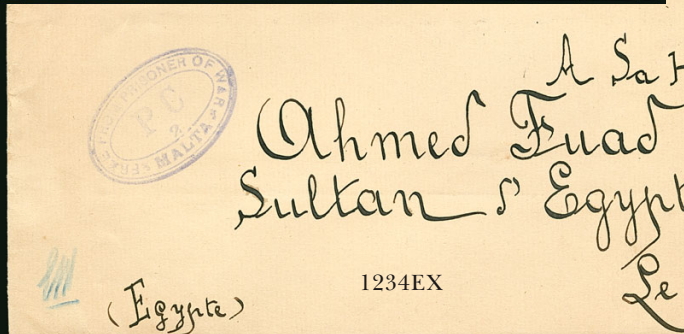 FREE FROM PRISONER OF WAR
P C
2
MALTA
A Sa H
Ahmed Fuad
Sultan d'Egypt
Le
1234EX
(Egypte)